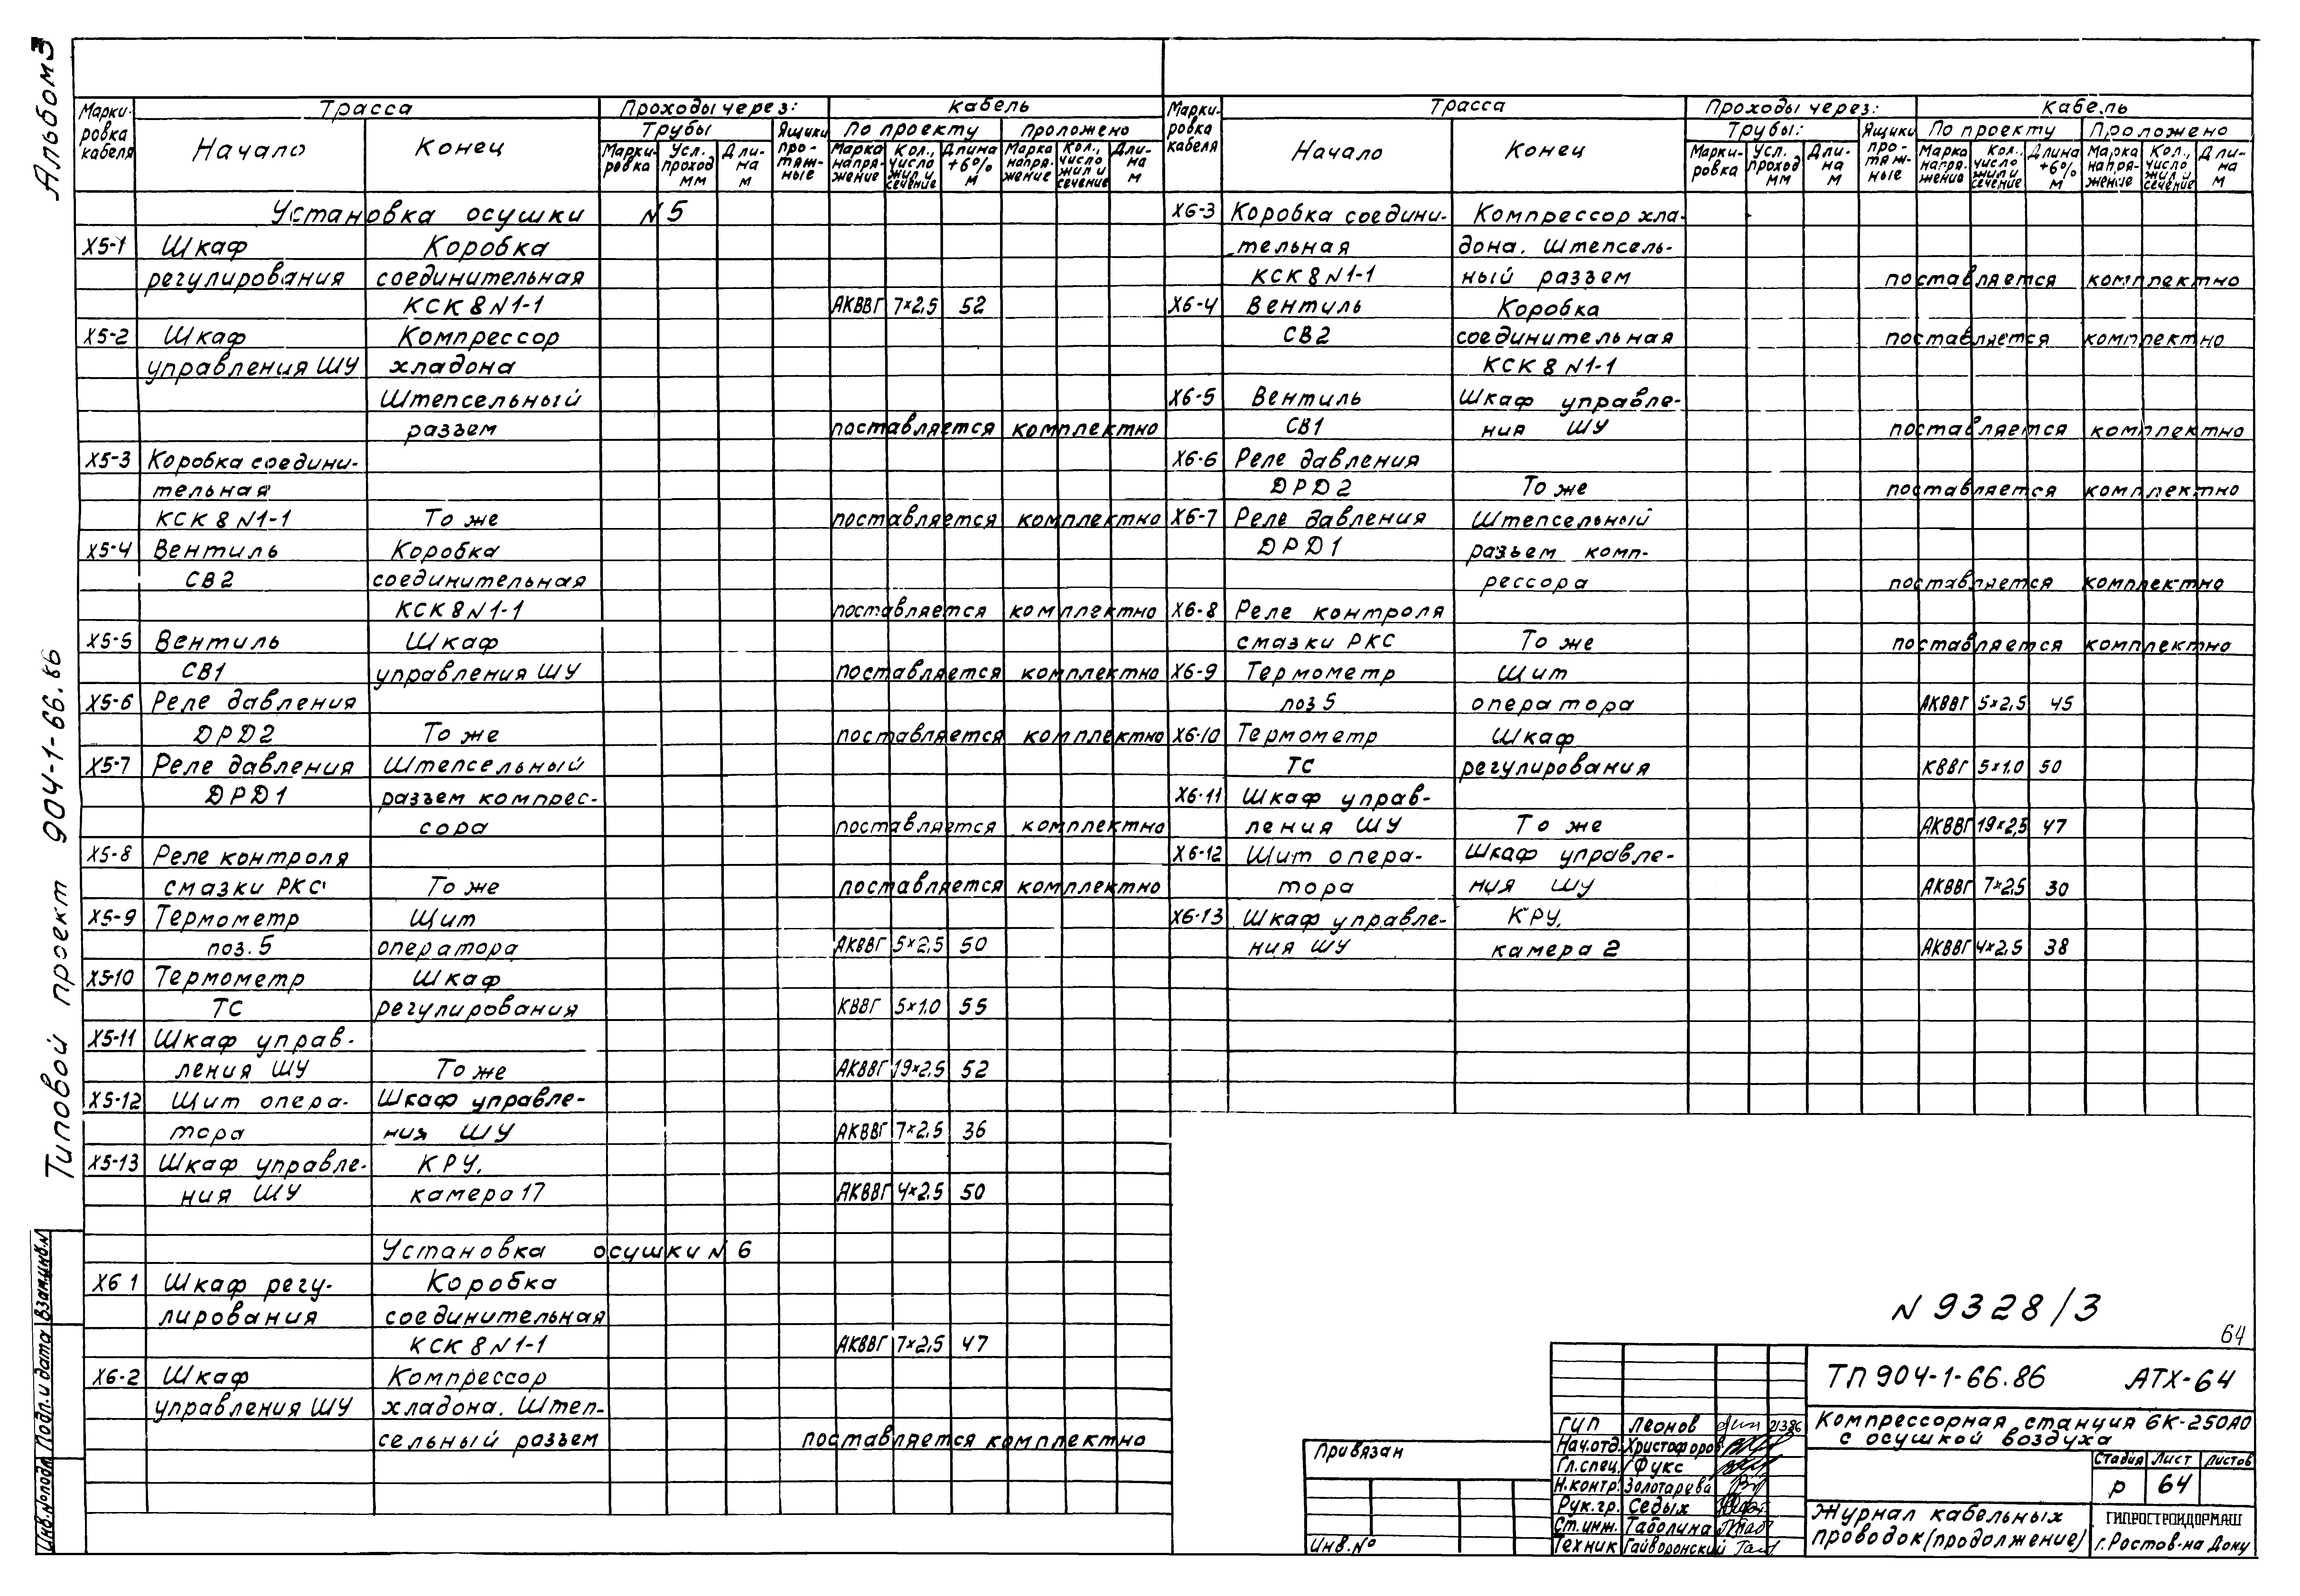 Альбом 3
Типовой проект 904-1-66.86
Марки-
ровка
кабеля
Трасса
Начало
Конец
Проходы через:
Трубы
Марки-
ровка
Усл.
проход
мм
Дли-
на
м
Ящики
про-
тяж-
ные
Кабель
По проекту
Марка
напря-
жение
Кол.,
число
жил и
сечение
Длина
+6%
м
Проложено
Марка
напря-
жение
Кол.,
число
жил и
сечение
Дли-
на
м
Установка осушки N5
X5-1 Шкаф Коробка
регулирования соединительная
КСК 8 N1-1 АКВВГ 7×2,5 52
X5-2 Шкаф Компрессор
управления ШУ хладона
Штепсельный
разъем поставляется комплектно
X5-3 Коробка соедини-
тельная
КСК 8 N1-1 То же поставляется комплектно
X5-4 Вентиль Коробка
СВ2 соединительная
КСК 8 N1-1 поставляется комплектно
X5-5 Вентиль Шкаф
СВ1 управления ШУ поставляется комплектно
X5-6 Реле давления
DPD2 То же поставляется комплектно
X5-7 Реле давления Штепсельный
DPD1 разъем компрес-
сора поставляется комплектно
X5-8 Реле контроля
смазки РКС То же поставляется комплектно
X5-9 Термометр Щит
поз.5 оператора АКВВГ 5×2,5 50
X5-10 Термометр Шкаф
ТС регулирования КВВГ 5×1.0 55
X5-11 Шкаф управ-
ления ШУ То же АКВВГ 19×2,5 52
X5-12 Щит опера- Шкаф управле-
тора ния ШУ АКВВГ 7×2,5 36
X5-13 Шкаф управле- КРУ,
ния ШУ камера 17 АКВВГ 4×2,5 50
Установка осушки N 6
X6 1 Шкаф регу- Коробка
лирования соединительная
КСК 8 N1-1 АКВВГ 7×2,5 47
X6-2 Шкаф Компрессор
управления ШУ хладона. Штеп-
сельный разъем поставляется комплектно
Марки-
ровка
кабеля
Трасса
Начало
Конец
Проходы через:
Трубы:
Марки-
ровка
Усл.
проход
мм
Дли-
на
м
Ящики
про-
тяж-
ные
Кабель
По проекту
Марка
напря-
жение
Кол.,
число
жил и
сечение
Длина
+6%
м
Проложено
Марка
напря-
жение
Кол.,
число
жил и
сечение
Дли-
на
м
X6-3 Коробка соедини- Компрессор хла-
тельная дона. Штепсель-
КСК 8 N1-1 ный разъем поставляется комплектно
X6-4 Вентиль Коробка
СВ2 соединительная поставляется комплектно
КСК 8 N1-1
X6-5 Вентиль Шкаф управле-
СВ1 ния ШУ поставляется комплектно
X6-6 Реле давления
DPD2 То же поставляется комплектно
X6-7 Реле давления Штепсельный
DPD1 разъем комп-
рессора поставляется комплектно
X6-8 Реле контроля
смазки РКС То же поставляется комплектно
X6-9 Термометр Щит
поз 5 оператора АКВВГ 5×2,5 45
X6-10 Термометр Шкаф
ТС регулирования КВВГ 5×1.0 50
X6-11 Шкаф управ-
ления ШУ То же АКВВГ 19×2,5 47
X6-12 Щит опера- Шкаф управле-
тора ния ШУ АКВВГ 7×2,5 30
X6-13 Шкаф управле- КРУ,
ния ШУ камера 2 АКВВГ 4×2,5 38
N 9328/3
64
ТП 904-1-66.86 АТХ-64
Компрессорная станция 6К-250АО
с осушкой воздуха
Стадия Лист Листов
Р 64
Журнал кабельных
проводок (продолжение)
ГИПРОСТРОЙДОРМАШ
г. Ростов-на Дону
ГИП Леонов
Нач.отд. Христофоров
Гл.спец. Фукс
Н.контр. Золотарева
Рук.гр. Седых
Ст.инж. Таболина
Техник Гайворонский
Привязан
Инв.№
Инв.№подл. Подп. и дата Взам.инв.№